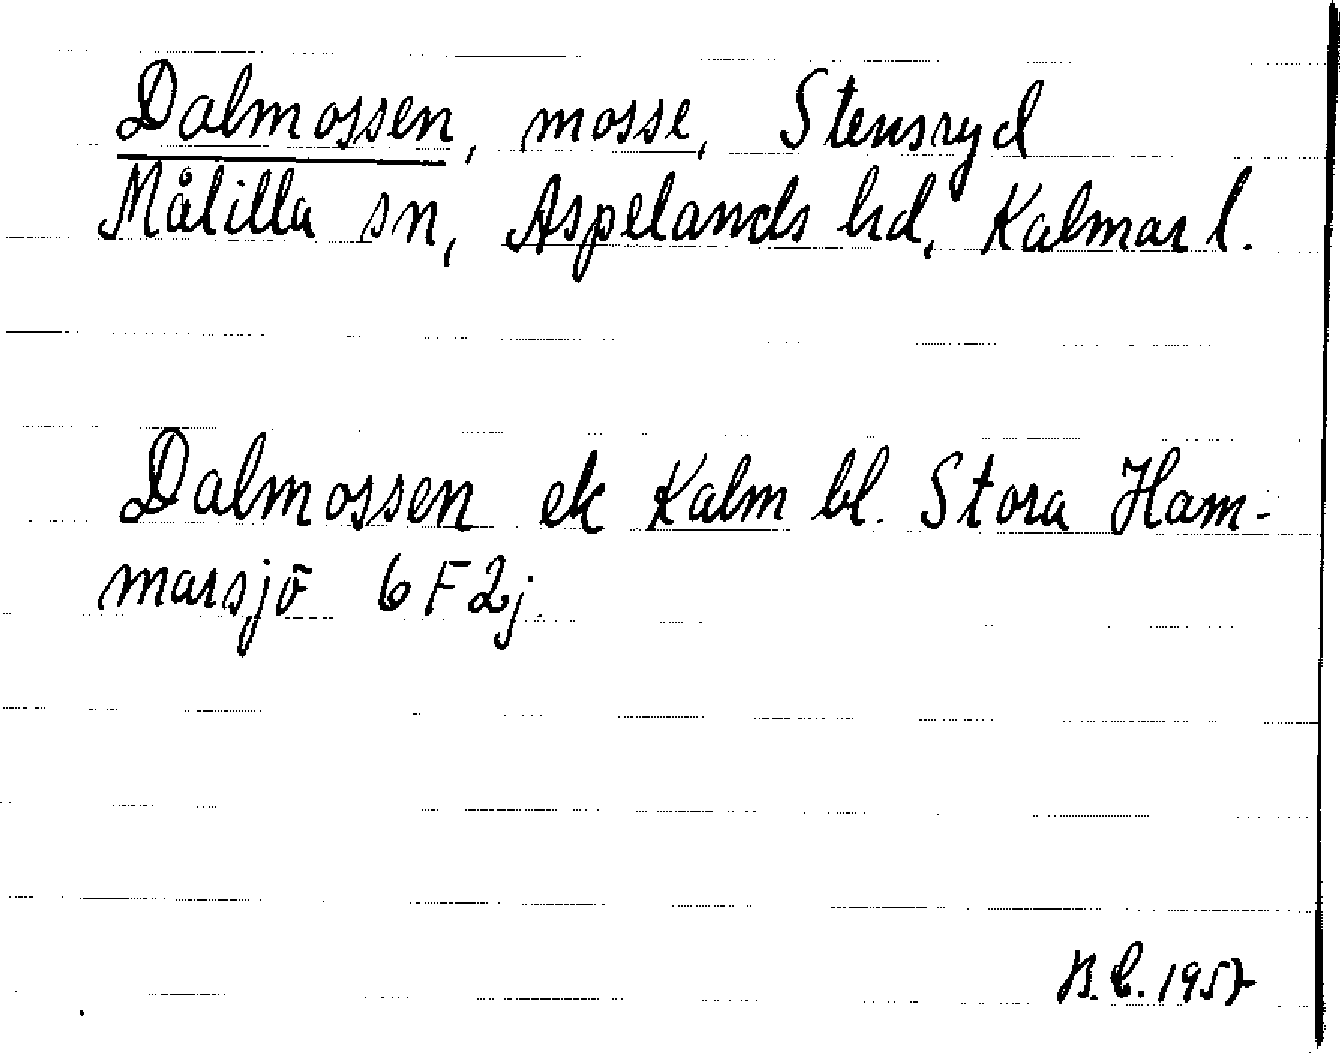 Dalmossen, mosse, Stensryd
Målilla sn, Aspelands hd, Kalmar l.
Dalmossen ek Kalm bl. Stora Ham-
marsjö 6F2j.
B.C. 1957